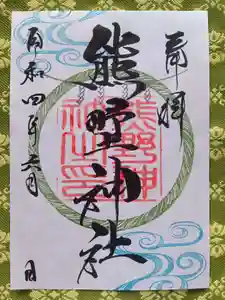 奉拝
熊野神社
熊野神社之印
令和四年六月 日